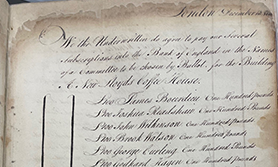 London December
We the Underwritten do agree to pay our Several
Subscriptions into the Bank of England in the Names
of a Committee to be chosen by Ballot for the Building
A New Lloyds Coffee House.
James Bourdieu One Hundred Pounds
Joshua Readshaw One Hundred Pounds
John Wilkinson One Hundred Pounds
Brook Watson One Hundred Pounds
George Curling One Hundred Pounds
Godhard Hagen One Hundred Pounds